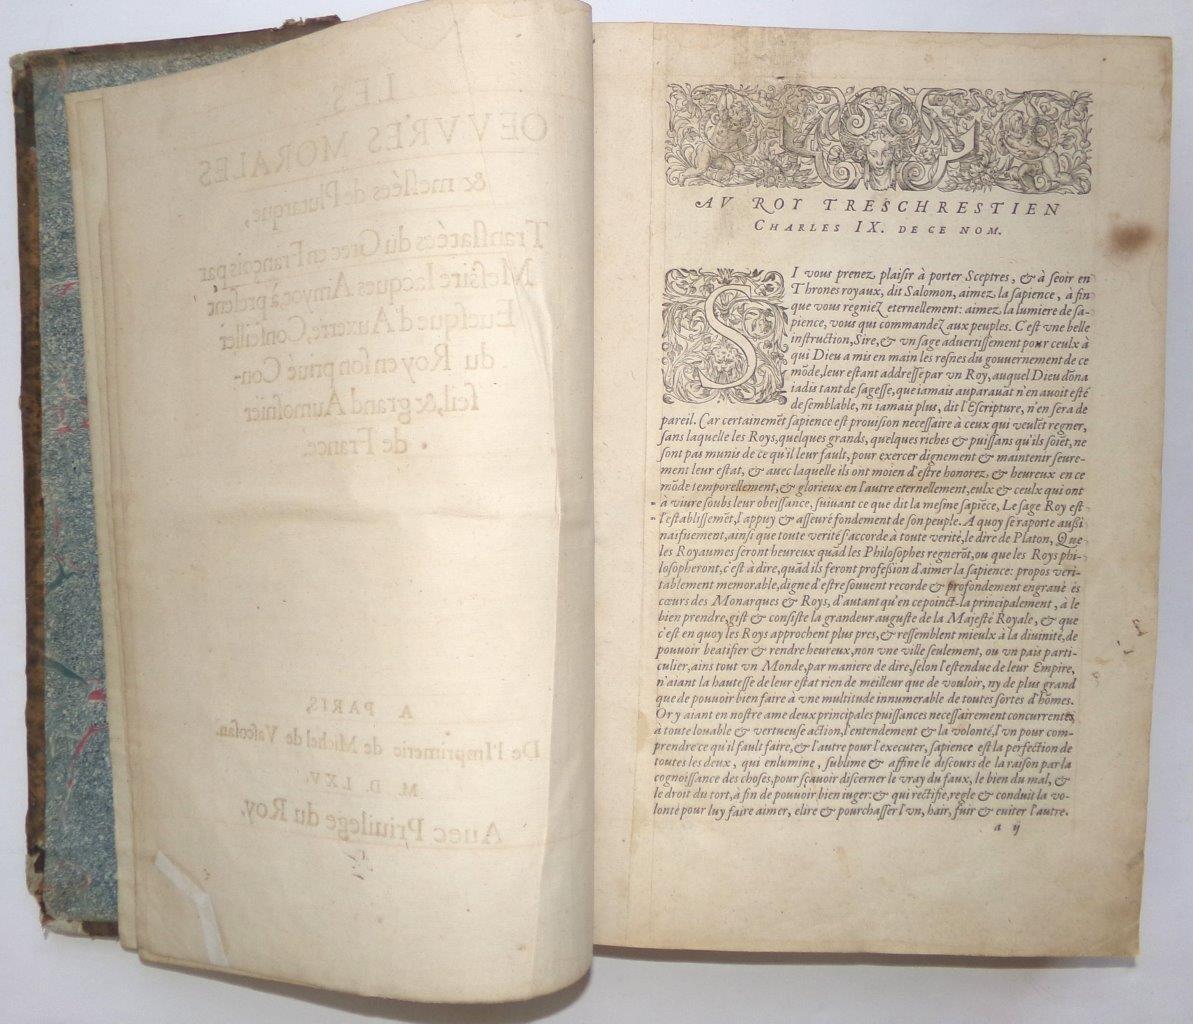 LES
OEVVRES MORALES
& meslées de Plutarque,
Translatées du Grec en François par
Messire Iacques Amyot, à present
Euesque d'Auxerre, Conseiller
du Roy en son priué Con-
seil, & grand Aumosnier
de France.
A PARIS,
De l'Imprimerie de Michel de Vascosan.
M. D. LXV.
Auec Priuilege du Roy.
AV ROY TRESCHRESTIEN
CHARLES IX. DE CE NOM.
SI vous prenez plaisir à porter Sceptres, & à seoir en
Thrones royaux, dit Salomon, aimez la sapience, à fin
que vous regniez eternellement: aimez la lumiere de sa-
pience, vous qui commandez aux peuples. C'est vne belle
instruction, Sire, & vn sage aduertissement pour ceulx à
qui Dieu a mis en main les resnes du gouuernement de ce
mōde, leur estant addressé par vn Roy, auquel Dieu dōna
iadis tant de sagesse, que iamais auparauāt n'en auoit esté
de semblable, ni iamais plus, dit l'Escripture, n'en sera de
pareil. Car certainemēt sapience est prouision necessaire à ceux qui veulēt regner,
sans laquelle les Roys, quelques grands, quelques riches & puissans qu'ils soiēt, ne
sont pas munis de ce qu'il leur fault, pour exercer dignement & maintenir seure-
ment leur estat, & auec laquelle ils ont moien d'estre honorez, & heureux en ce
mōde temporellement, & glorieux en l'autre eternellement, eulx & ceulx qui ont
à viure soubs leur obeissance, suiuant ce que dit la mesme sapiēce, Le sage Roy est
l'establissemēt, l'appuy & asseuré fondement de son peuple. A quoy se raporte aussi
naifuement, ainsi que toute verité s'accorde à toute verité, le dire de Platon, Que
les Royaumes seront heureux quād les Philosophes regnerōt, ou que les Roys phi-
losopheront, c'est à dire, quād ils feront profession d'aimer la sapience: propos veri-
tablement memorable, digne d'estre souuent recordé & profondement engraué és
cœurs des Monarques & Roys, d'autant qu'en ce poinct-la principalement, à le
bien prendre, gist & consiste la grandeur auguste de la Majesté Royale, & que
c'est en quoy les Roys approchent plus pres, & ressemblent mieulx à la diuinité, de
pouuoir beatifier & rendre heureux, non vne ville seulement, ou vn païs parti-
culier, ains tout vn Monde, par maniere de dire, selon l'estendue de leur Empire,
n'aiant la hautesse de leur estat rien de meilleur que de vouloir, ny de plus grand
que de pouuoir bien faire à vne multitude innumerable de toutes sortes d'hōmes.
Or y aiant en nostre ame deux principales puissances necessairement concurrentes
à toute louable & vertueuse action, l'entendement & la volonté, l'vn pour com-
prendre ce qu'il fault faire, & l'autre pour l'executer, sapience est la perfection de
toutes les deux, qui enlumine, sublime & affine le discours de la raison par la
cognoissance des choses, pour sçauoir discerner le vray du faux, le bien du mal, &
le droit du tort, à fin de pouuoir bien iuger: & qui rectifie, regle & conduit la vo-
lonté pour luy faire aimer, elire & pourchasser l'vn, haïr, fuir & euiter l'autre.
a ij